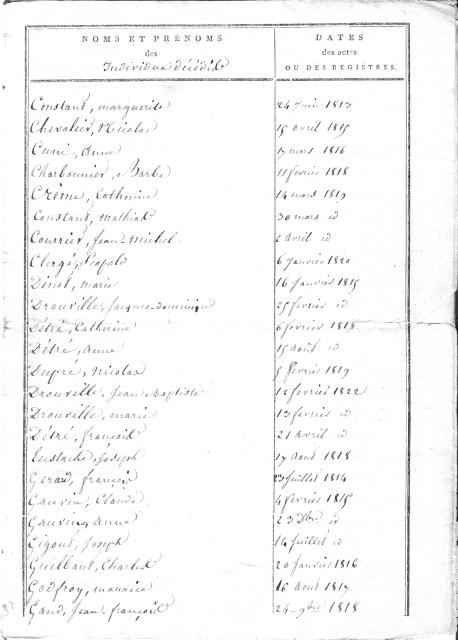 NOMS ET PRÉNOMS
des
Individus décédés
DATES
des actes
OU DES REGISTRES.
Constant, marguerite 24 Juin 1813
Chevalier, Nicolas 15 avril 1815
Cuni, Anne 17 mars 1816
Charbonnier, Barbe 11 février 1818
Crème, Catherine 14 mars 1819
Constant, Mathias 30 mars id
Courrier, Jean-Michel 2 avril id
Clergé, Léopold 6 Janvier 1820
Dinot, marie 16 Janvier 1815
Drouville, Jacques-dominique 25 février id
Détré, Catherine 6 février 1818
Détré, Anne 15 Août id
Dupré, Nicolas 5 février 1819
Drouville, Jean-Baptiste 12 février 1822
Drouville, marie 13 février id
Détré, françois 21 avril id
Eustache, Joseph 17 Aout 1818
Gerard, françois 23 Juillet 1814
Gauvin, Claude 4 février 1815
Gauving Anne 23 Xbre id
Gigout, Joseph 14 Juillet id
Guilbaut, Charles 20 Janvier 1816
Godfroy, maurice 16 Aout 1817
Gand, Jean-françois 24 9bre 1818